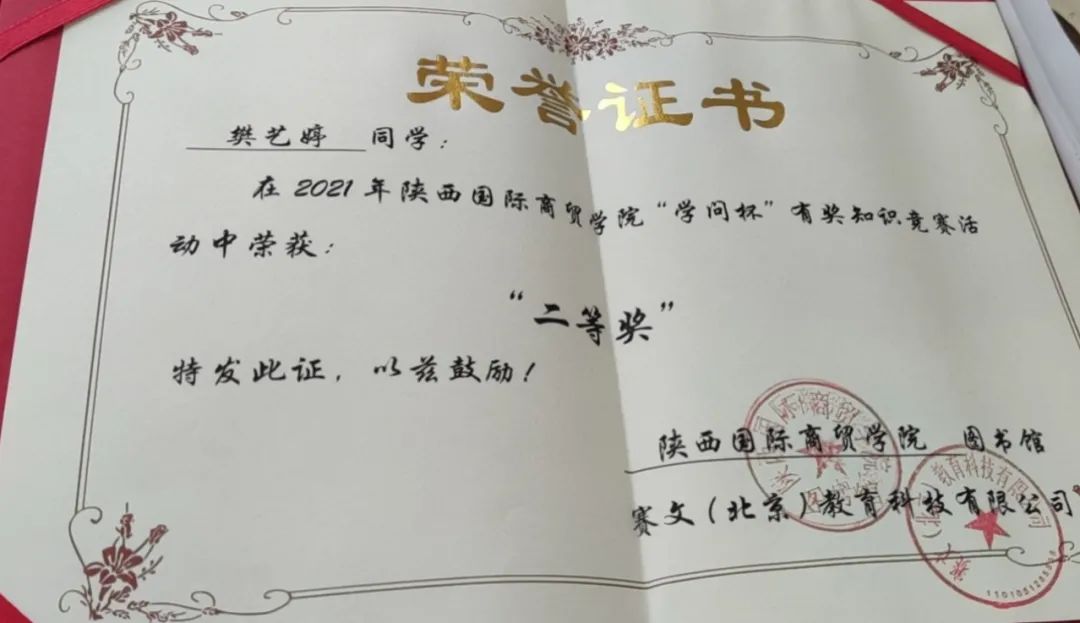 荣誉证书
樊艺婷 同学：
在2021年陕西国际商贸学院“学问杯”有奖知识竞赛活
动中荣获：
“二等奖”
特发此证，以兹鼓励！
陕西国际商贸学院 图书馆
赛文（北京）教育科技有限公司